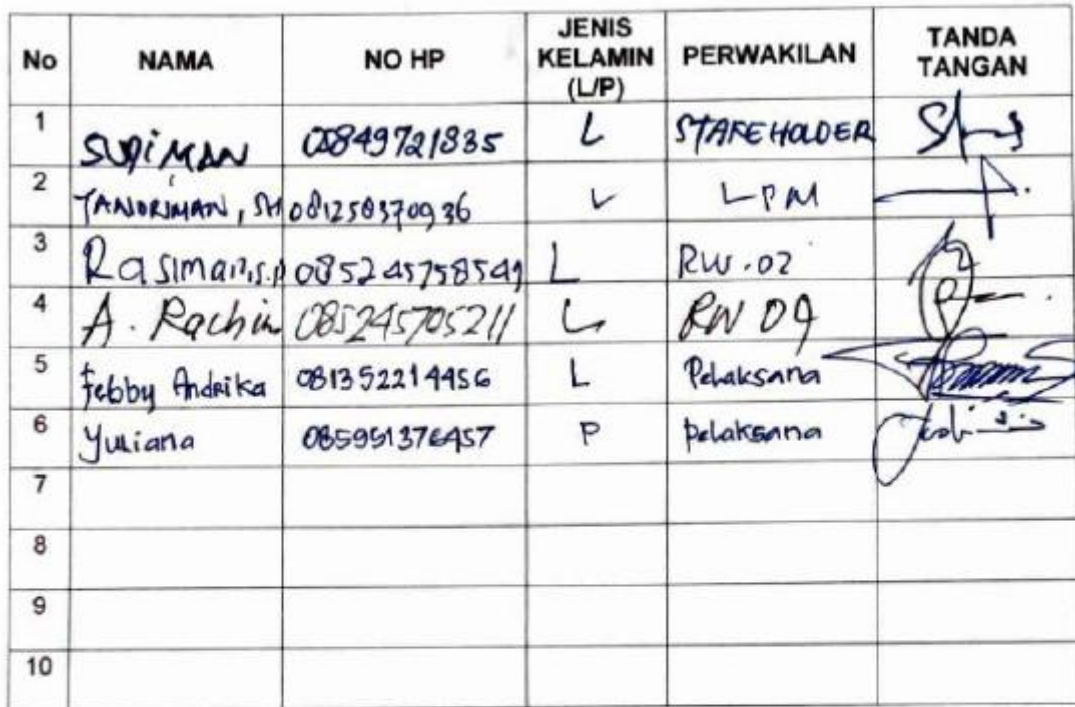 No NAMA NO HP JENIS KELAMIN (L/P) PERWAKILAN TANDA TANGAN
1 SUDIMAN 00849721835 L STAKEHOLDER
2 TANDRIMAN, SH 081258370936 L LPM
3 Rasiman, S.P 085245758549 L RW.02
4 A. Rachim 085245705211 L RW 09
5 Febby Andrika 081352214456 L Pelaksana
6 Yuliana 085951376457 P pelaksana
7
8
9
10